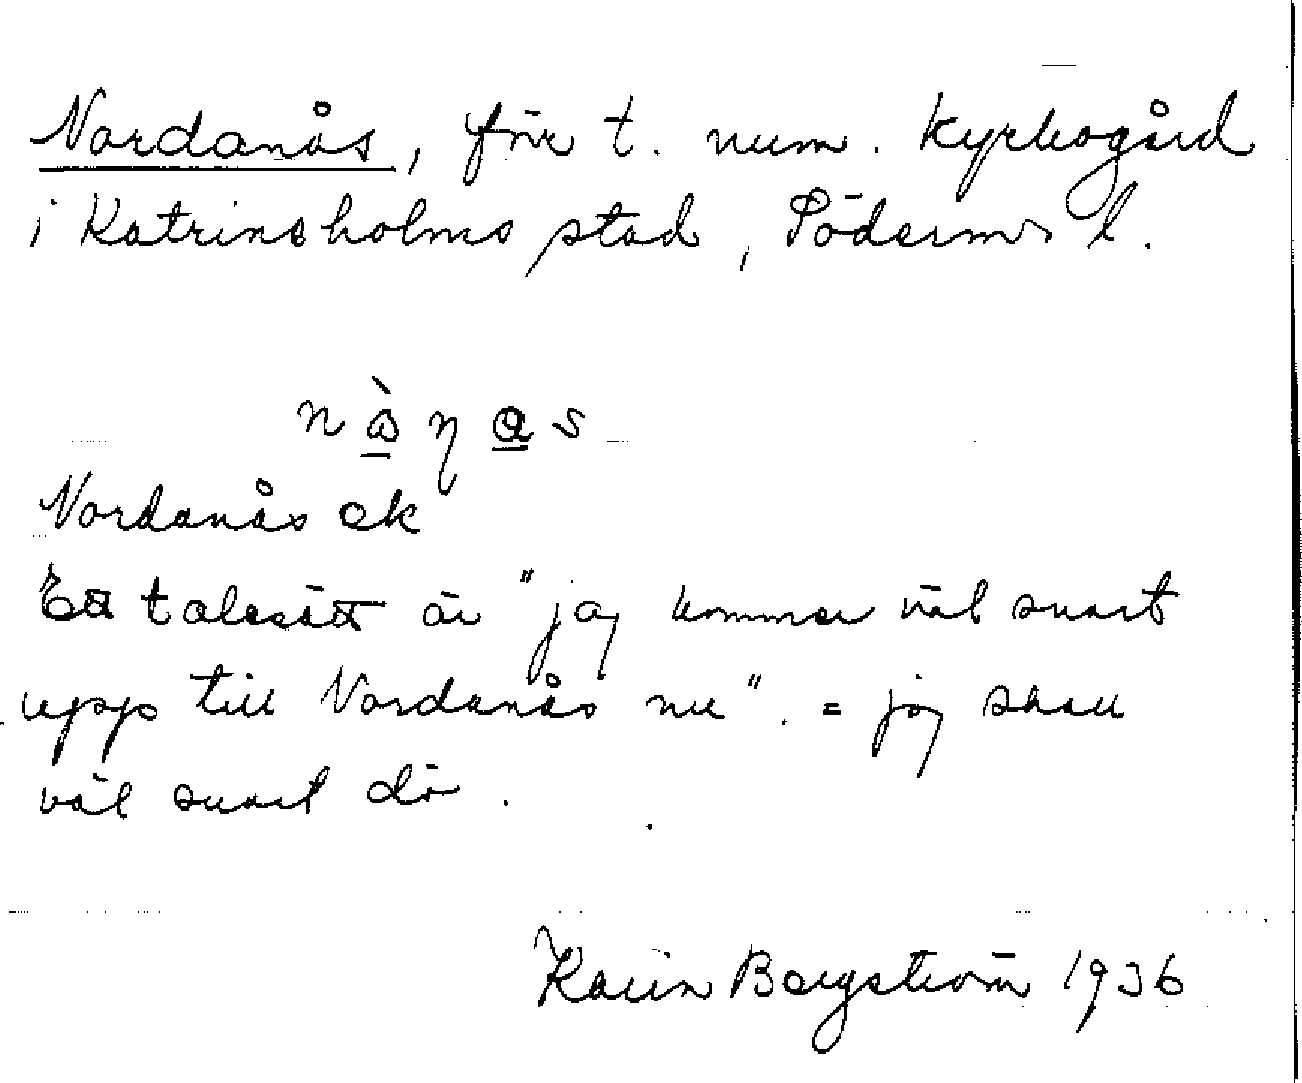 Nordanås, förr t. num. kyrkogård
i Katrineholms stad, Söderm. l.
Nordanås ek
Ett talesätt är "jag kommer väl snart
upp till Nordanås nu". = jag skall
väl snart dö.
Karin Bergström 1936